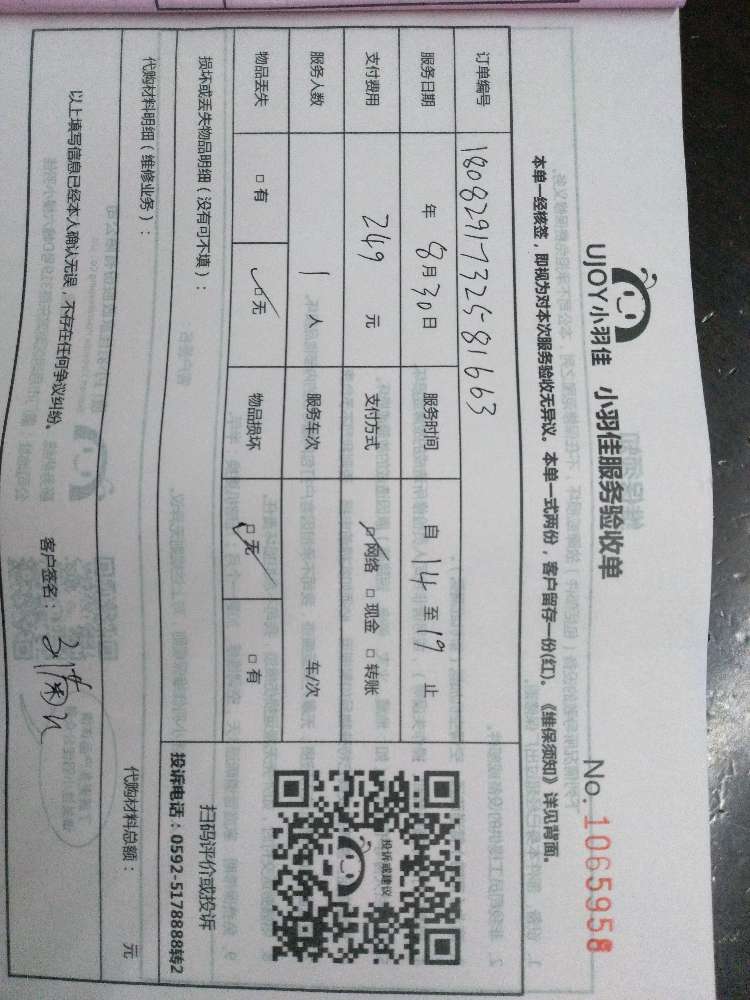 UJOY小羽佳 小羽佳服务验收单 No. 1065958
本单一经核签，即视为对本次服务验收无异议。本单一式两份，客户留存一份(红)。《维保须知》详见背面。
订单编号 1808291732581663
服务日期 年 8月30日 服务时间 自 14 至 17 止
支付费用 249 元 支付方式 ☑网络 □现金 □转账
服务人数 1 人 服务车次 车/次
物品丢失 □有 ☑无 物品损坏 ☑无 □有
损坏或丢失物品明细（没有可不填）：
投诉或建议
扫码评价或投诉
投诉电话：0592-5178888转2
代购材料明细（维修业务）： 代购材料总额： 元
以上填写信息已经本人确认无误，不存在任何争议纠纷。 客户签名：